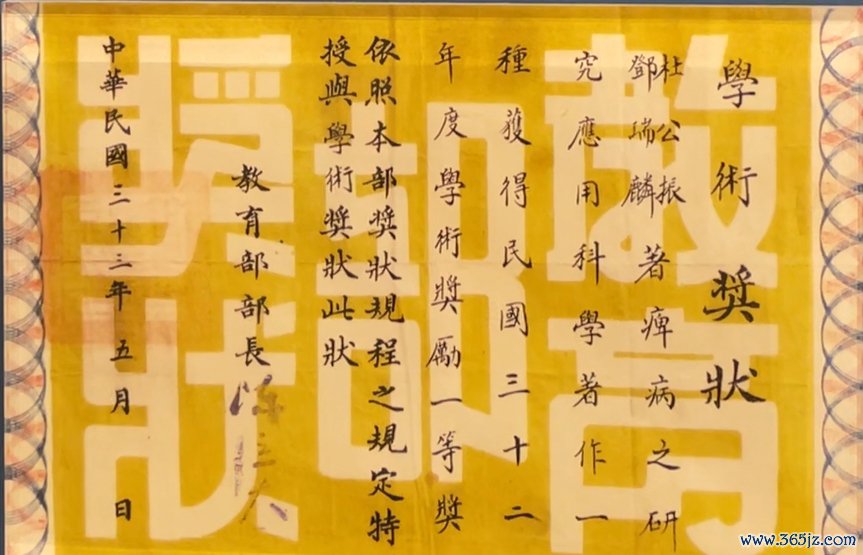 學術獎狀
杜公振
鄧瑞麟
著痺病之研
究應用科學著作一
種獲得民國三十二
年度學術獎勵一等獎
依照本部獎狀規程之規定特
授與學術獎狀此狀
教育部部長 陳立夫
中華民國三十三年五月 日
教育部獎狀
www.365jz.com